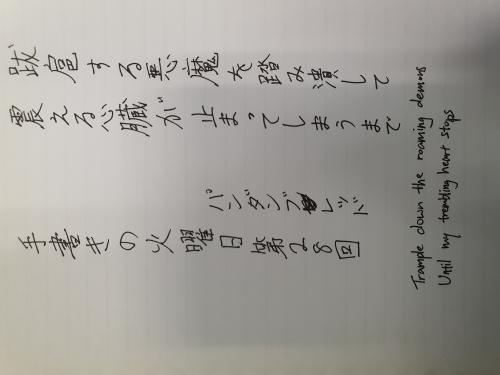 跋扈する悪魔を踏み潰して
震える心臓が止まってしまうまで
パンダンブレッド
手書きの火曜日第28回
Trample down the roaming demons
Until my trembling heart stops